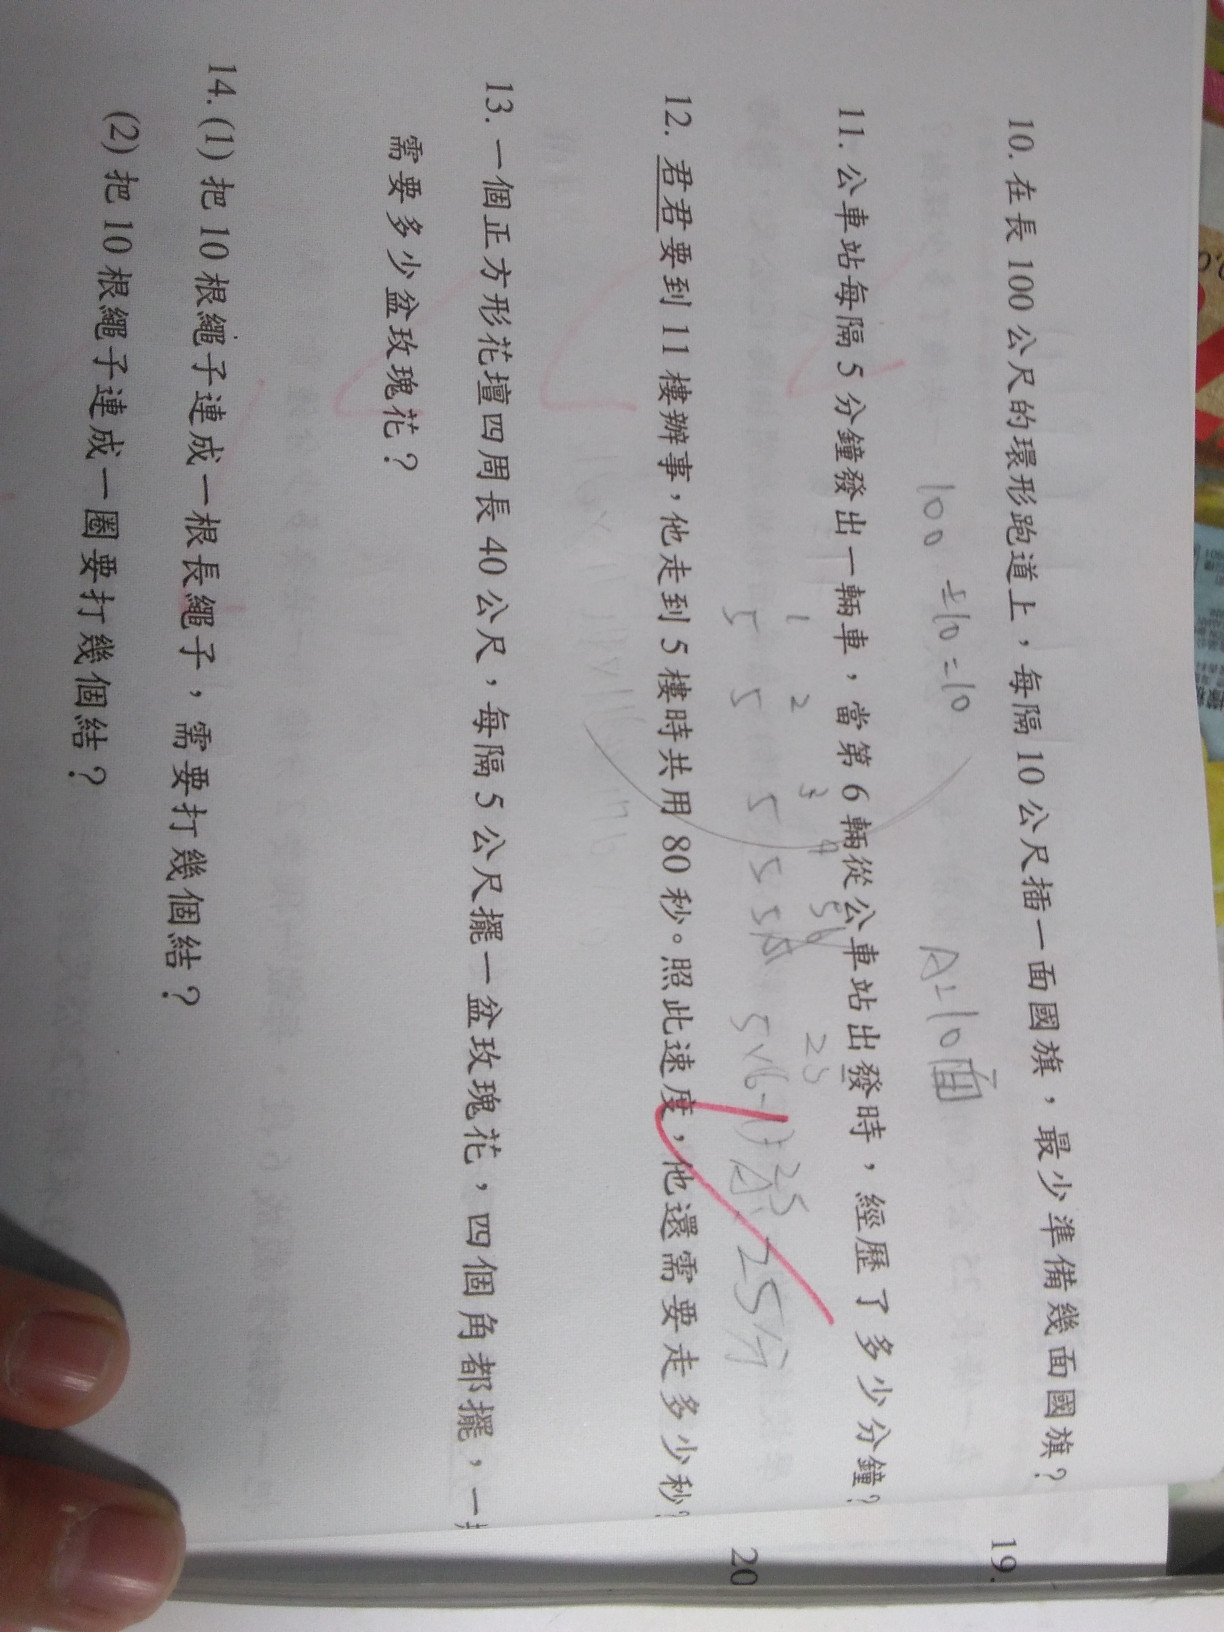 10. 在長 100 公尺的環形跑道上，每隔 10 公尺插一面國旗，最少準備幾面國旗？
100 ÷10=10 A=10面
11. 公車站每隔 5 分鐘發出一輛車，當第 6 輛從公車站出發時，經歷了多少分鐘？
1 2 3 4 5 6 25
5 5 5 5 5 5×(6-1)=25 A: 25分
12. 君君要到 11 樓辦事，他走到 5 樓時共用 80 秒。照此速度，他還需要走多少秒？
13. 一個正方形花壇四周長 40 公尺，每隔 5 公尺擺一盆玫瑰花，四個角都擺，一
需要多少盆玫瑰花？
14. (1) 把 10 根繩子連成一根長繩子，需要打幾個結？
(2) 把 10 根繩子連成一圈要打幾個結？
19.
20